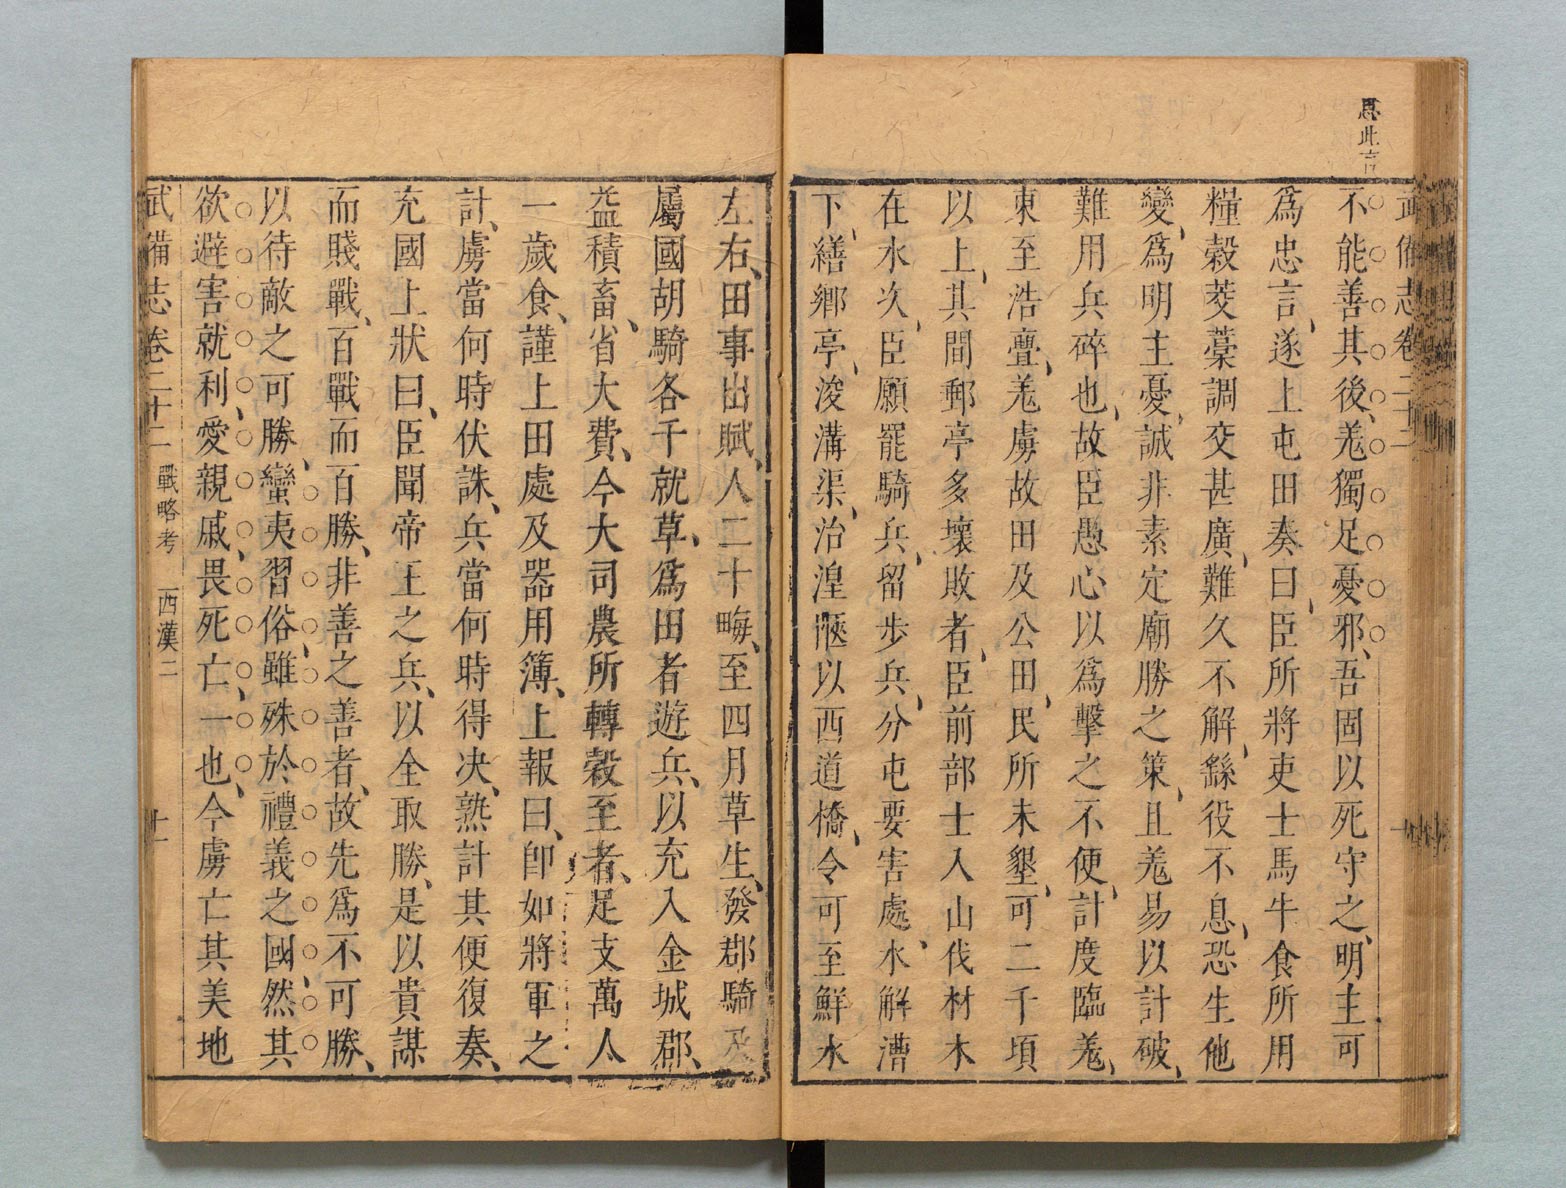 思此言
武備志卷二十二
不能善其後、羗獨足憂邪、吾固以死守之、明主可
爲忠言、遂上屯田奏曰、臣所將吏士馬牛食所用
糧穀茭藁調交甚廣、難久不解、繇役不息、恐生他
變、爲明主憂、誠非素定廟勝之策、且羗易以計破、
難用兵碎也、故臣愚心以爲擊之不便、計度臨羗、
東至浩亹、羗虜故田及公田、民所未墾、可二千頃
以上、其間郵亭多壞敗者、臣前部士入山伐材木
在水次、臣願罷騎兵、留步兵、分屯要害處、水解漕
下、繕鄉亭、浚溝渠、治湟陿以西道橋、令可至鮮水
左右、田事出賦、人二十畮、至四月草生、發郡騎及
屬國胡騎各千就草、爲田者遊兵、以充入金城郡、
益積畜、省大費、今大司農所轉穀至者、足支萬人
一歲食、謹上田處及器用簿、上報曰、卽如將軍之
計、虜當何時伏誅、兵當何時得决、熟計其便復奏、
充國上狀曰、臣聞帝王之兵、以全取勝、是以貴謀
而賤戰、百戰而百勝、非善之善者、故先爲不可勝、
以待敵之可勝、蠻夷習俗、雖殊於禮義之國、然其
欲避害就利、愛親戚、畏死亡、一也、今虜亡其美地
武備志卷二十二 戰略考 西漢二 十一